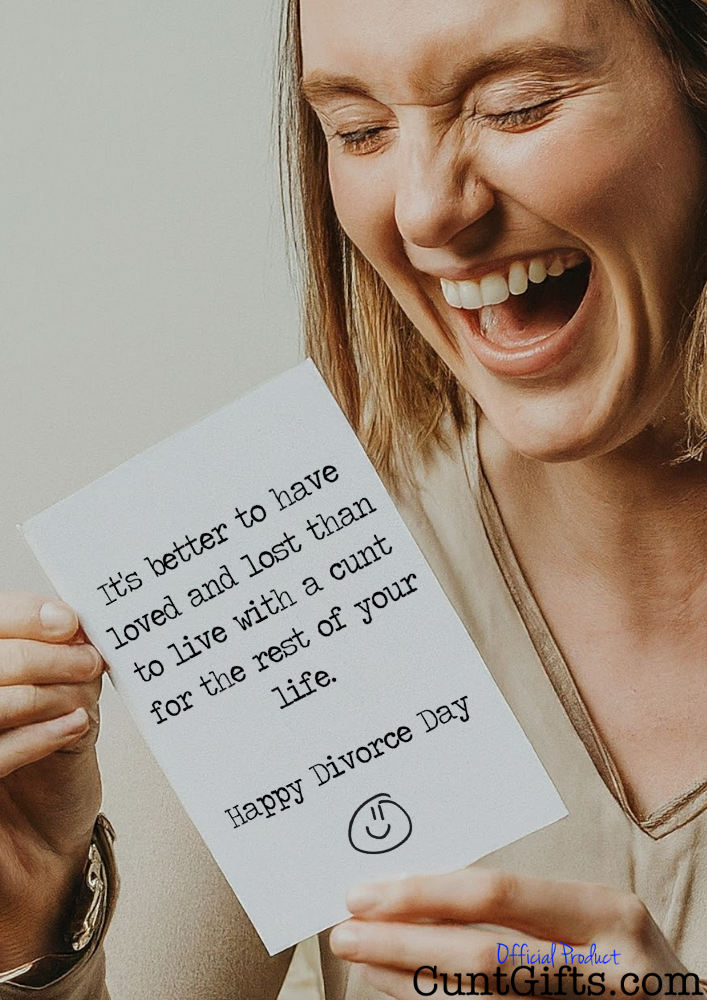 It's better to have
loved and lost than
to live with a cunt
for the rest of your
life.
Happy Divorce Day
Official Product
CuntGifts.com